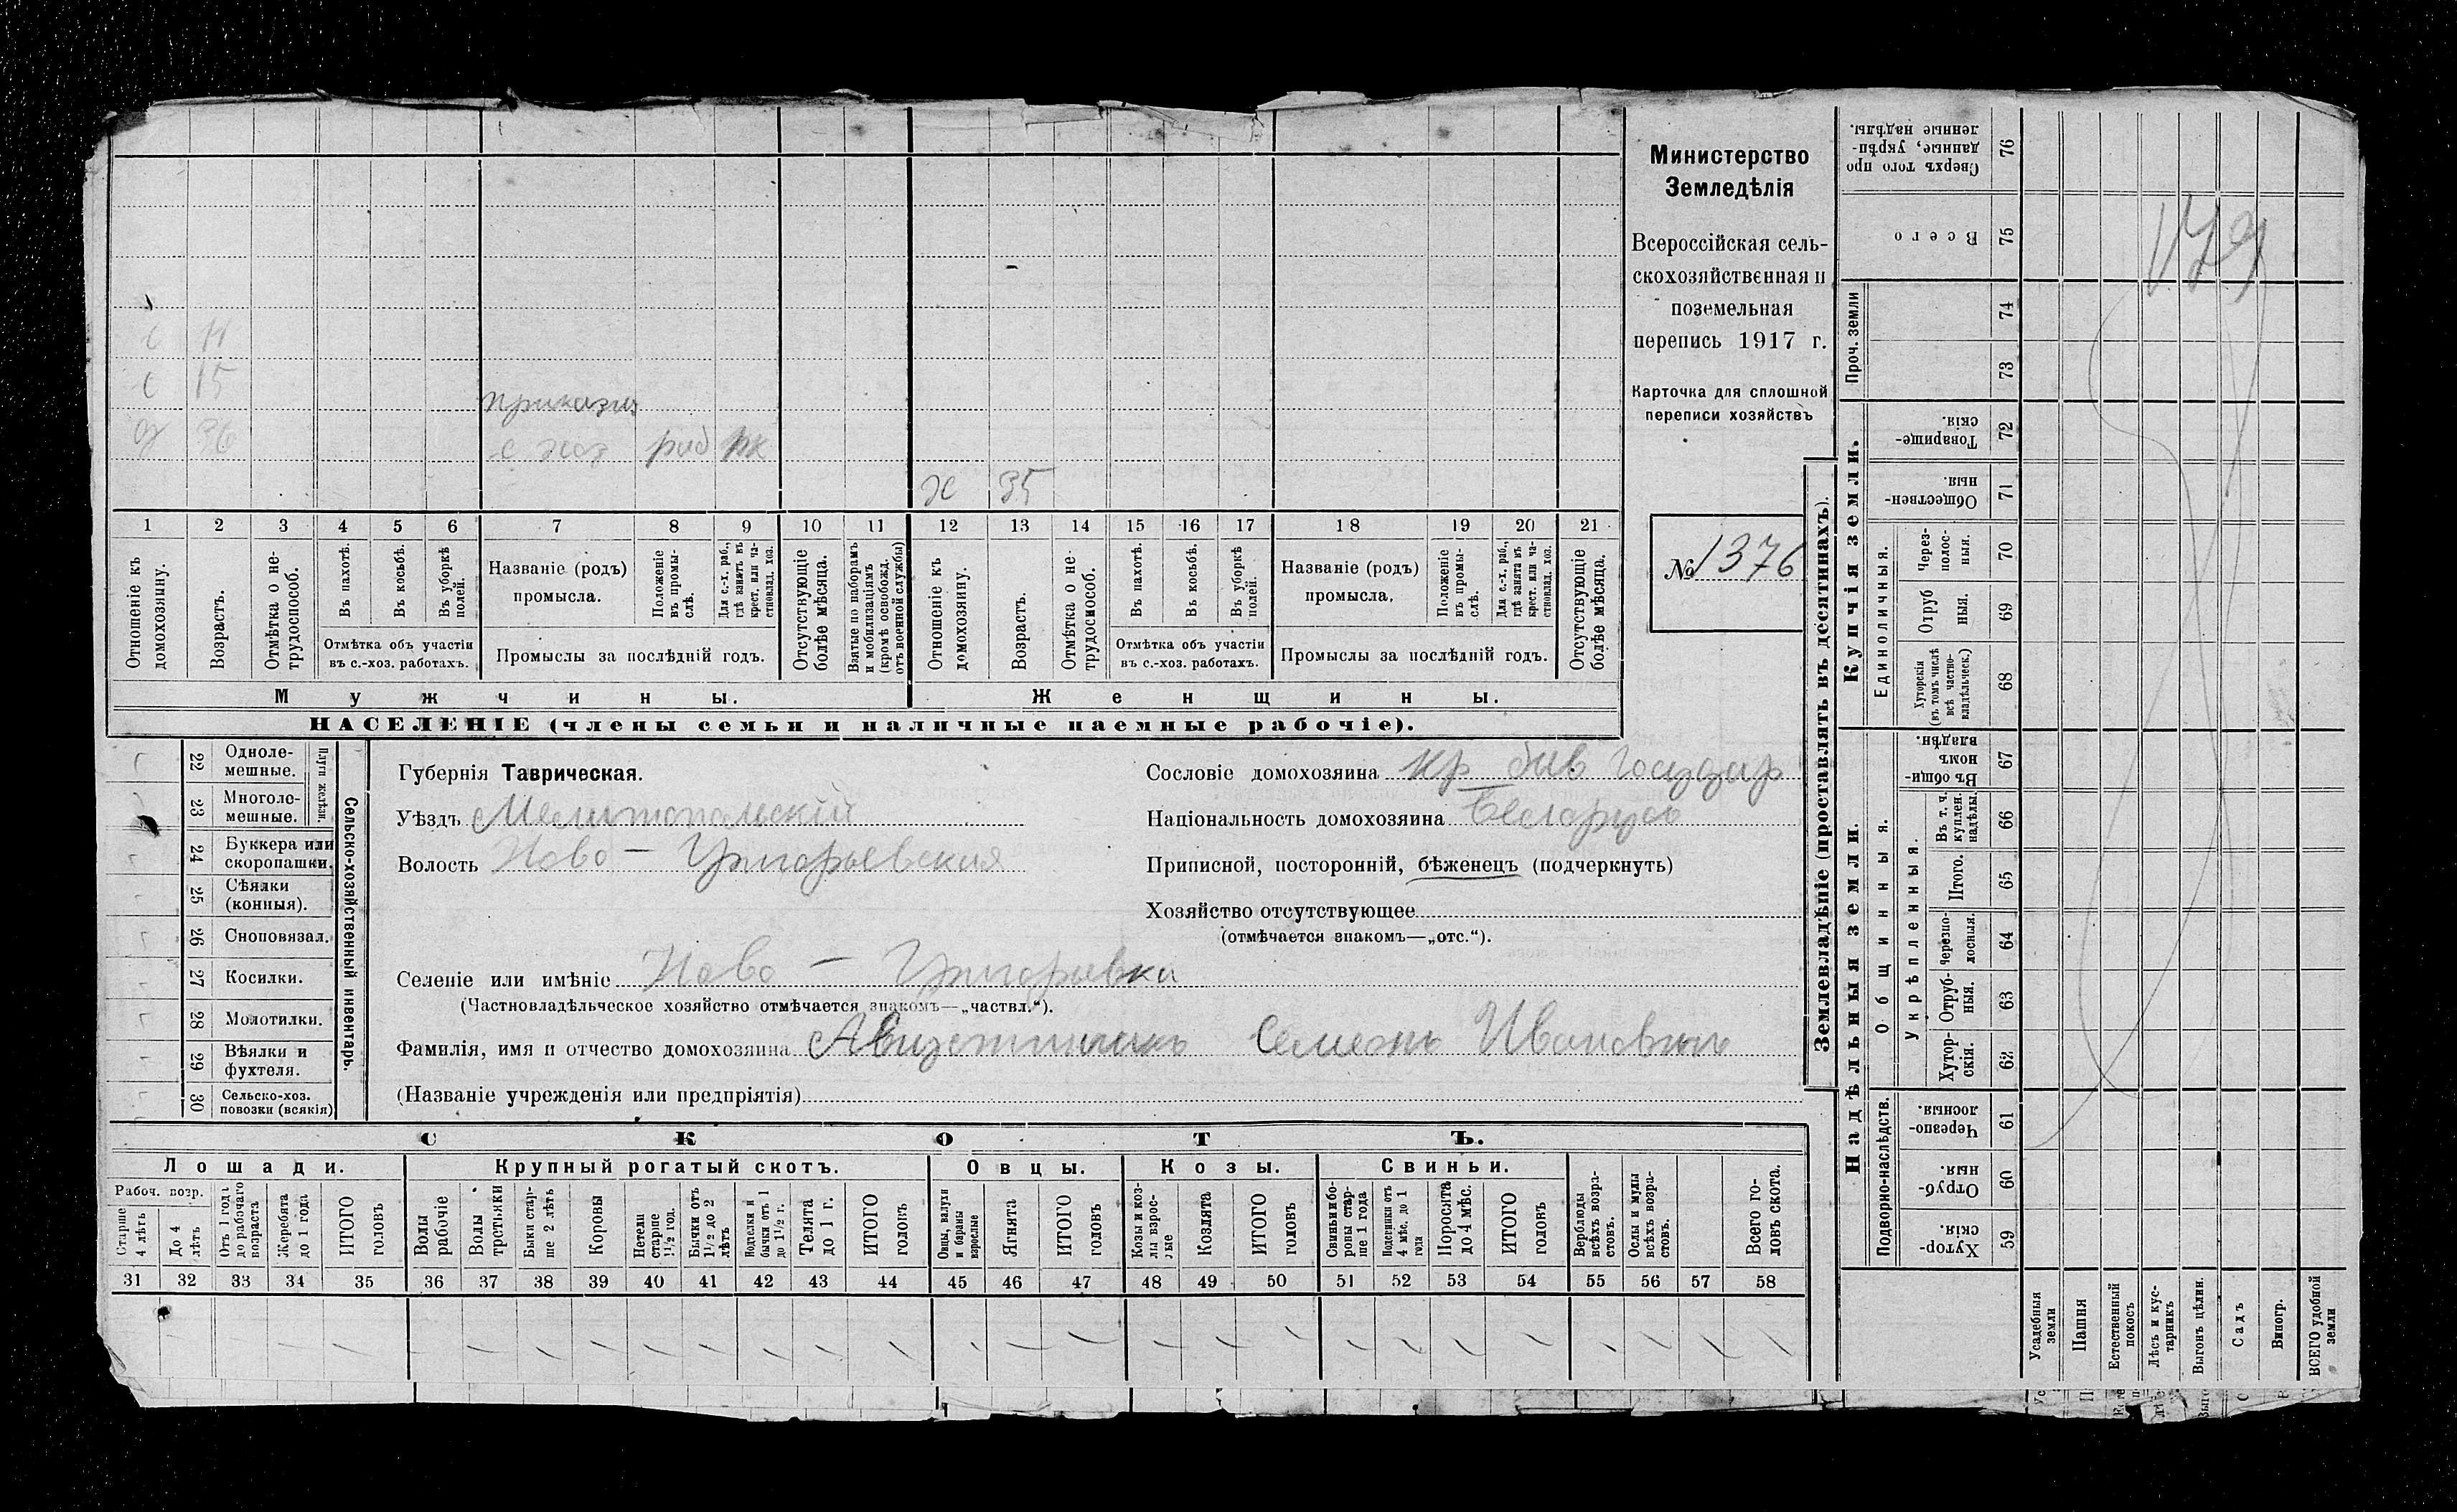 с 11
с 15
приказч
36 с хоз раб
ж 35
1 2 3 4 5 6 7 8 9 10 11 12 13 14 15 16 17 18 19 20 21
Отношеніе къ домохозяину.
Возрастъ.
Отмѣтка о не-трудоспособ.
Въ пахотѣ.
Въ косьбѣ.
Въ уборкѣ полей.
Отмѣтка объ участіи
въ с.-хоз. работахъ.
Названіе (родъ)
промысла.
Положеніе въ промы-слѣ.
Для с.-х. раб., гдѣ занятъ въ крест. или ча-стновлад. хоз.
Промыслы за послѣдній годъ.
Отсутствующіе болѣе мѣсяца.
Взятые по наборамъ и мобилизаціямъ (кромѣ освобожд. отъ военной службы)
Отношеніе къ домохозяину.
Возрастъ.
Отмѣтка о не-трудоспособ.
Въ пахотѣ.
Въ косьбѣ.
Въ уборкѣ полей.
Отмѣтка объ участіи
въ с.-хоз. работахъ.
Названіе (родъ)
промысла.
Положеніе въ промы-слѣ.
Для с.-х. раб., гдѣ занята въ крест. или ча-стновлад. хоз.
Промыслы за послѣдній годъ.
Отсутствующіе болѣе мѣсяца.
Мужчины.
Женщины.
НАСЕЛЕНІЕ (члены семьи и наличные наемные рабочіе).
Министерство
Земледѣлія
Всероссійская сель-
скохозяйственная и
поземельная
перепись 1917 г.
Карточка для сплошной
переписи хозяйствъ
№ 1376
22 Одноле-мешные.
23 Многоле-мешные.
Плуги желѣзн.
24 Буккера или скоропашки.
25 Сѣялки (конныя).
26 Сноповязал.
27 Косилки.
28 Молотилки.
29 Вѣялки и фухтеля.
30 Сельско-хоз. повозки (всякія)
Сельско-хозяйственный инвентарь.
Губернія Таврическая.
Уѣздъ Мелитопольскій
Волость Ново-Григорьевская
Селеніе или имѣніе Ново-Григорьевка
(Частновладѣльческое хозяйство отмѣчается знакомъ—„частвл.“).
Фамилія, имя и отчество домохозяина Семенъ Ивановичъ
(Названіе учрежденія или предпріятія)
Сословіе домохозяина кр бив Государ
Національность домохозяина Бѣлорусъ
Приписной, посторонній, бѣженецъ (подчеркнуть)
Хозяйство отсутствующее
(отмѣчается знакомъ—„отс.“).
СКОТЪ.
Лошади.
Крупный рогатый скотъ.
Овцы.
Козы.
Свиньи.
Рабоч. возр.
Старше 4 лѣтъ
До 4 лѣтъ
Отъ 1 года до рабочаго возраста
Жеребята до 1 года
ИТОГО головъ
Волы рабочіе
Волы третьяки
Быки стар-ше 2 лѣтъ
Коровы
Нетели старше 1½ год.
Бычки отъ 1½ до 2 лѣтъ
Подтелки и бычки отъ 1 до 1½ г.
Телята до 1 г.
ИТОГО головъ
Овцы, валухи и бараны взрослые
Ягнята
ИТОГО головъ
Козы и коз-лы взрос-лые
Козлята
ИТОГО головъ
Свиньи и бо-ровы стар-ше 1 года
Подсвинки отъ 4 мѣс. до 1 года
Поросята до 4 мѣс.
ИТОГО головъ
Верблюды всѣхъ возра-стовъ.
Ослы и мулы всѣхъ возра-стовъ.
Всего го-ловъ скота.
31 32 33 34 35 36 37 38 39 40 41 42 43 44 45 46 47 48 49 50 51 52 53 54 55 56 57 58
Землевладѣніе (проставлять въ десятинахъ).
Надѣльныя земли.
Купчія земли.
Проч. земли
Подворно-наслѣдств.
Общинныя.
Укрѣпленныя.
Единоличныя.
Сверхъ того про данные, укрѣп-ленные надѣлы. 76
Всего 75
74
73
Товарище-скія. 72
Обществен-ныя. 71
Через-полос-ныя. 70
Отруб ныя. 69
Хуторскія (въ томъ числѣ всѣ частно-владѣльческ.) 68
Въ общи-номъ владѣн. 67
Въ т. ч. куплен. надѣлы. 66
Итого. 65
Черезпо-лосныя. 64
Отруб-ныя. 63
Хутор-скія. 62
Черезпо-лосныя. 61
Отруб-ныя. 60
Хутор-скія. 59
179
Усадебныя земли
Пашня
Естественный покосъ
Лѣсъ и кус-тарникъ
Выгонъ цѣлин.
Садъ
Виногр.
ВСЕГО удобной земли